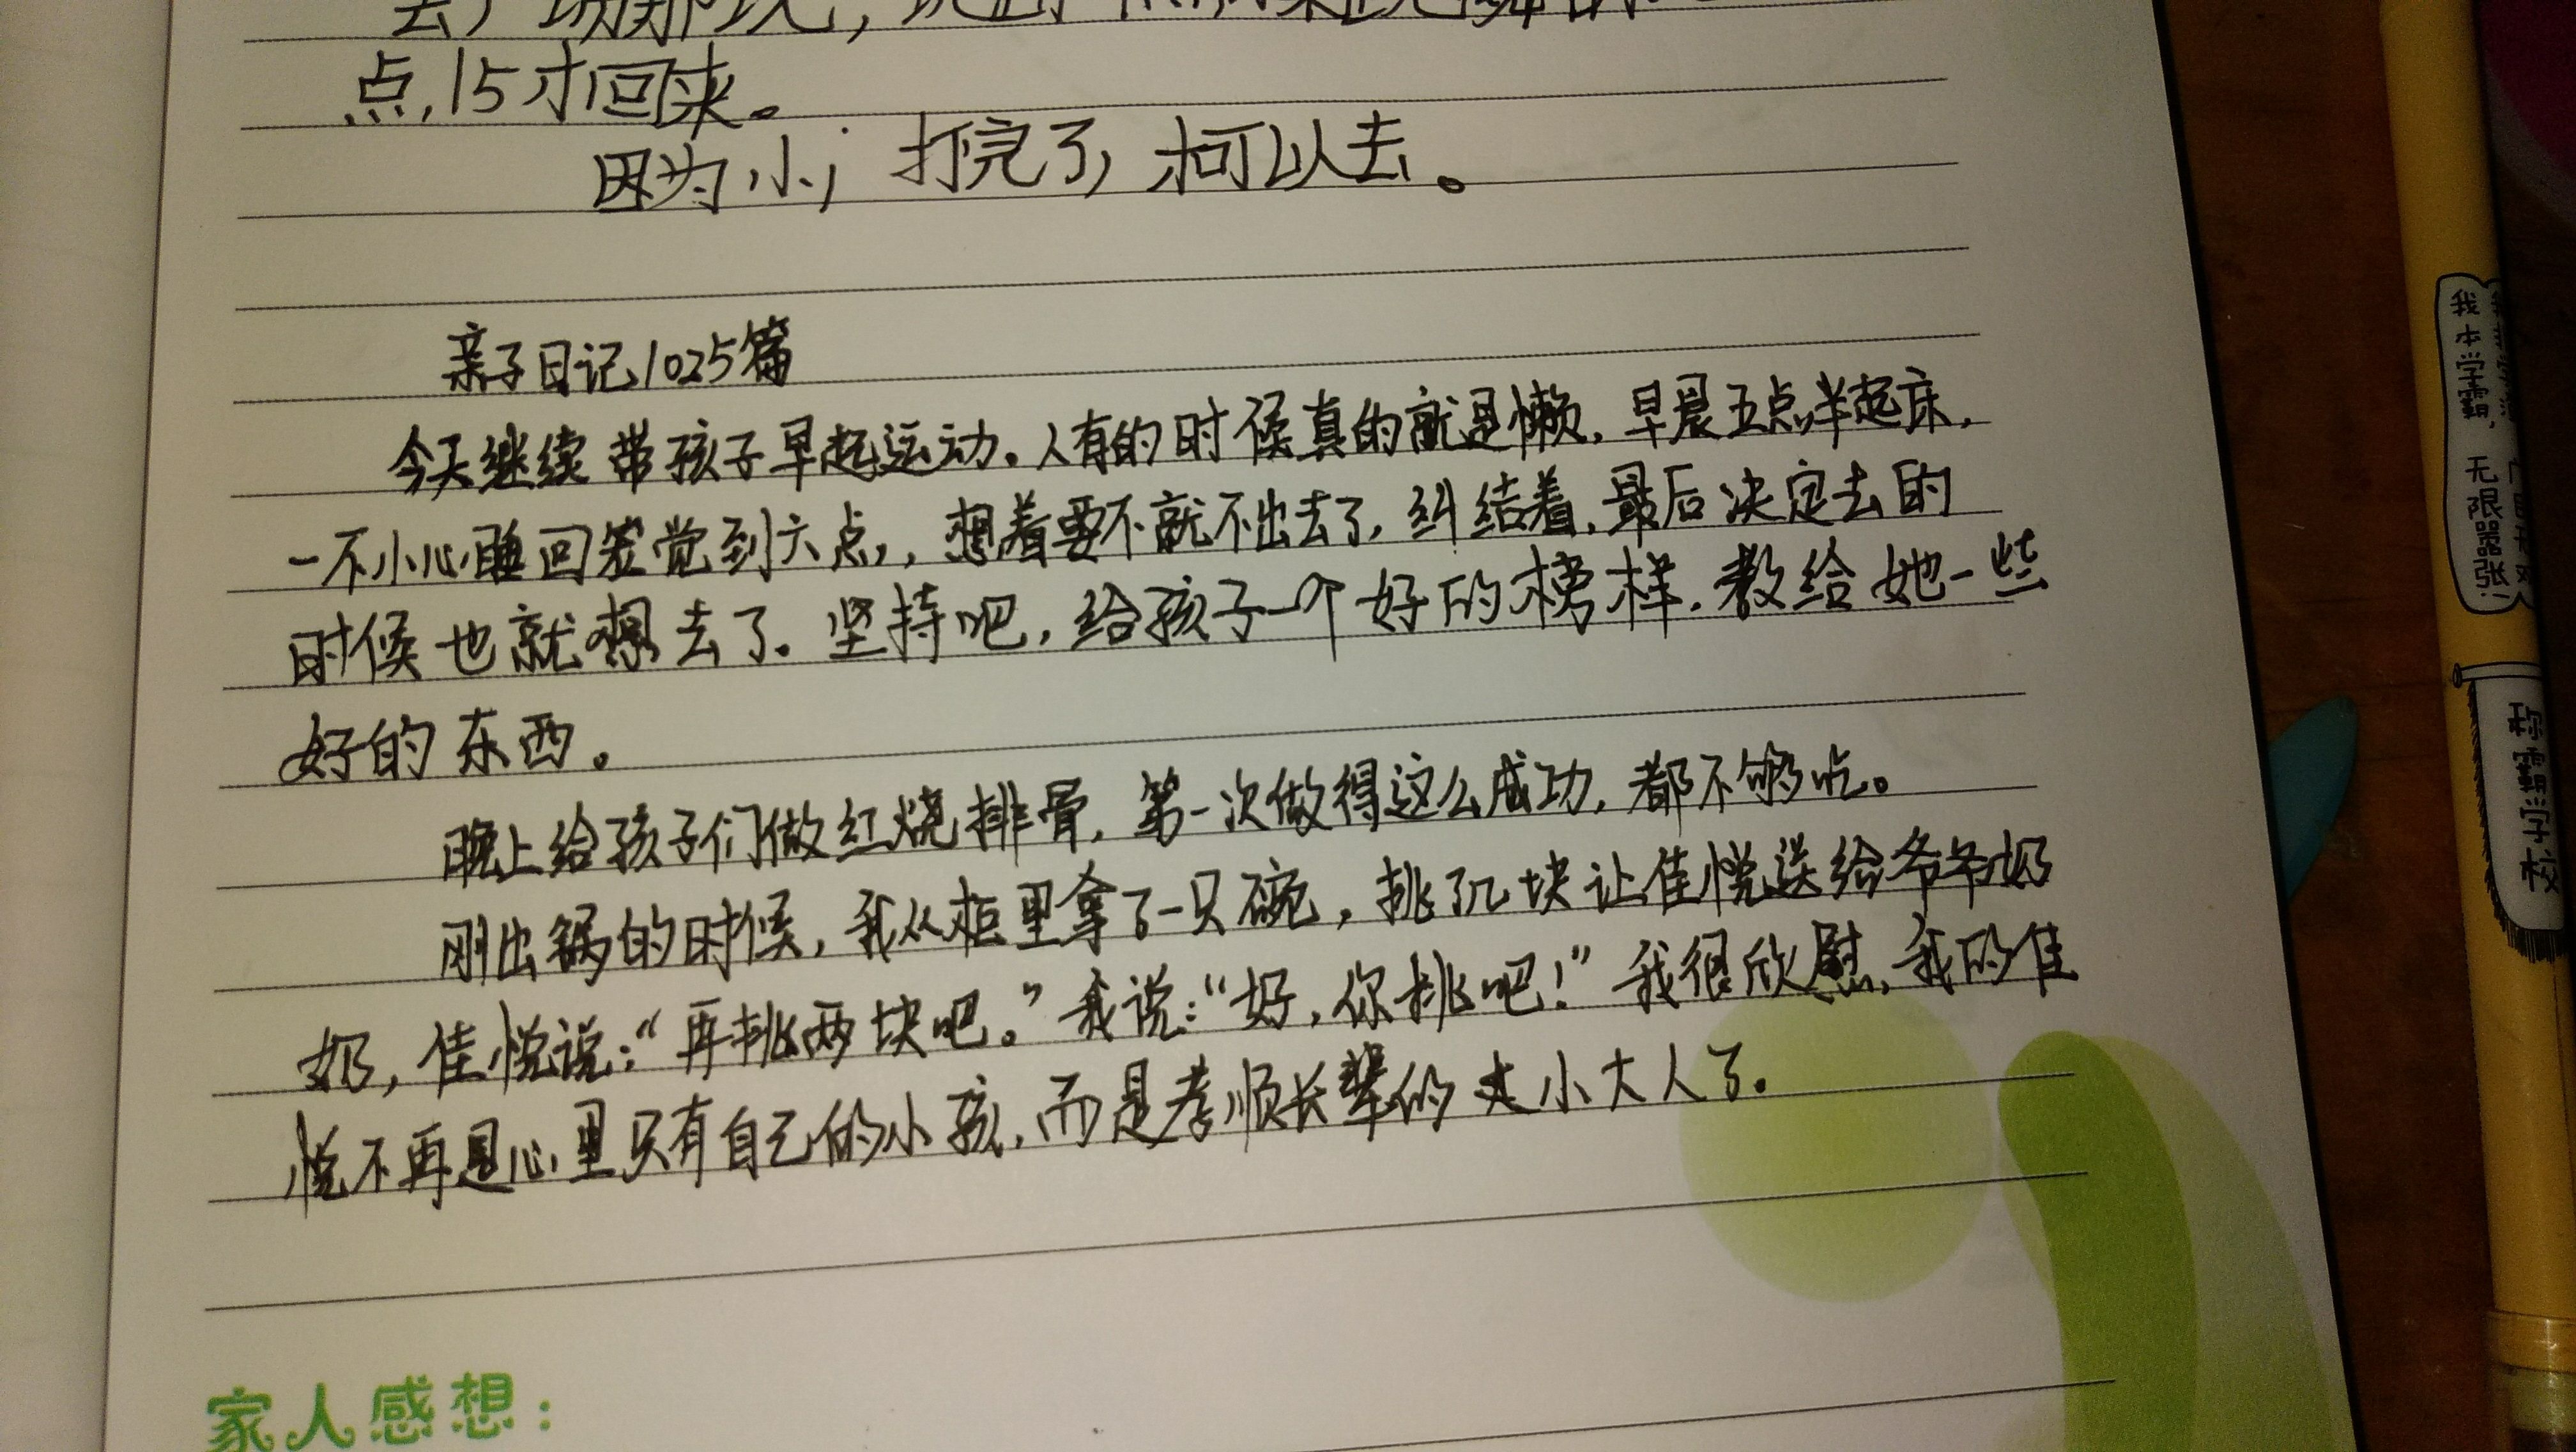 点,15才回来。
因为小j 打完了,才可以去。
亲子日记1025篇
今天继续带孩子早起运动。人有的时候真的就是懒,早晨五点半起床,
一不小心睡回笼觉到六点,,想着要不就不出去了,纠结着,最后决定去的
时候也就想去了。坚持吧,给孩子一个好的榜样,教给她一些
好的东西。
晚上给孩子们做红烧排骨,第一次做得这么成功,都不够吃。
刚出锅的时候,我从柜里拿了一只碗,挑了几块让佳悦送给爷爷奶
奶,佳悦说:“再挑两块吧。”我说:“好,你挑吧!”我很欣慰,我的佳
悦不再是心里只有自己的小孩,而是孝顺长辈的小大人了。
家人感想:
我本学霸,
无限嚣张!
称霸学校